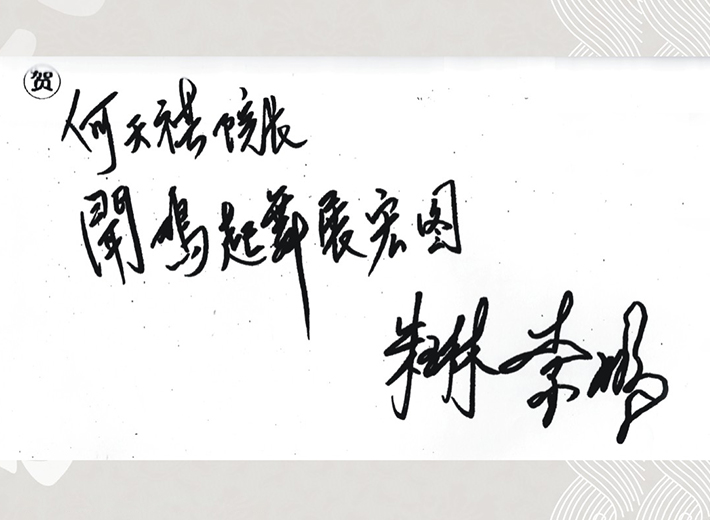 贺
何天祺院长
闻鸡起舞展宏图
朱琳 李鹏